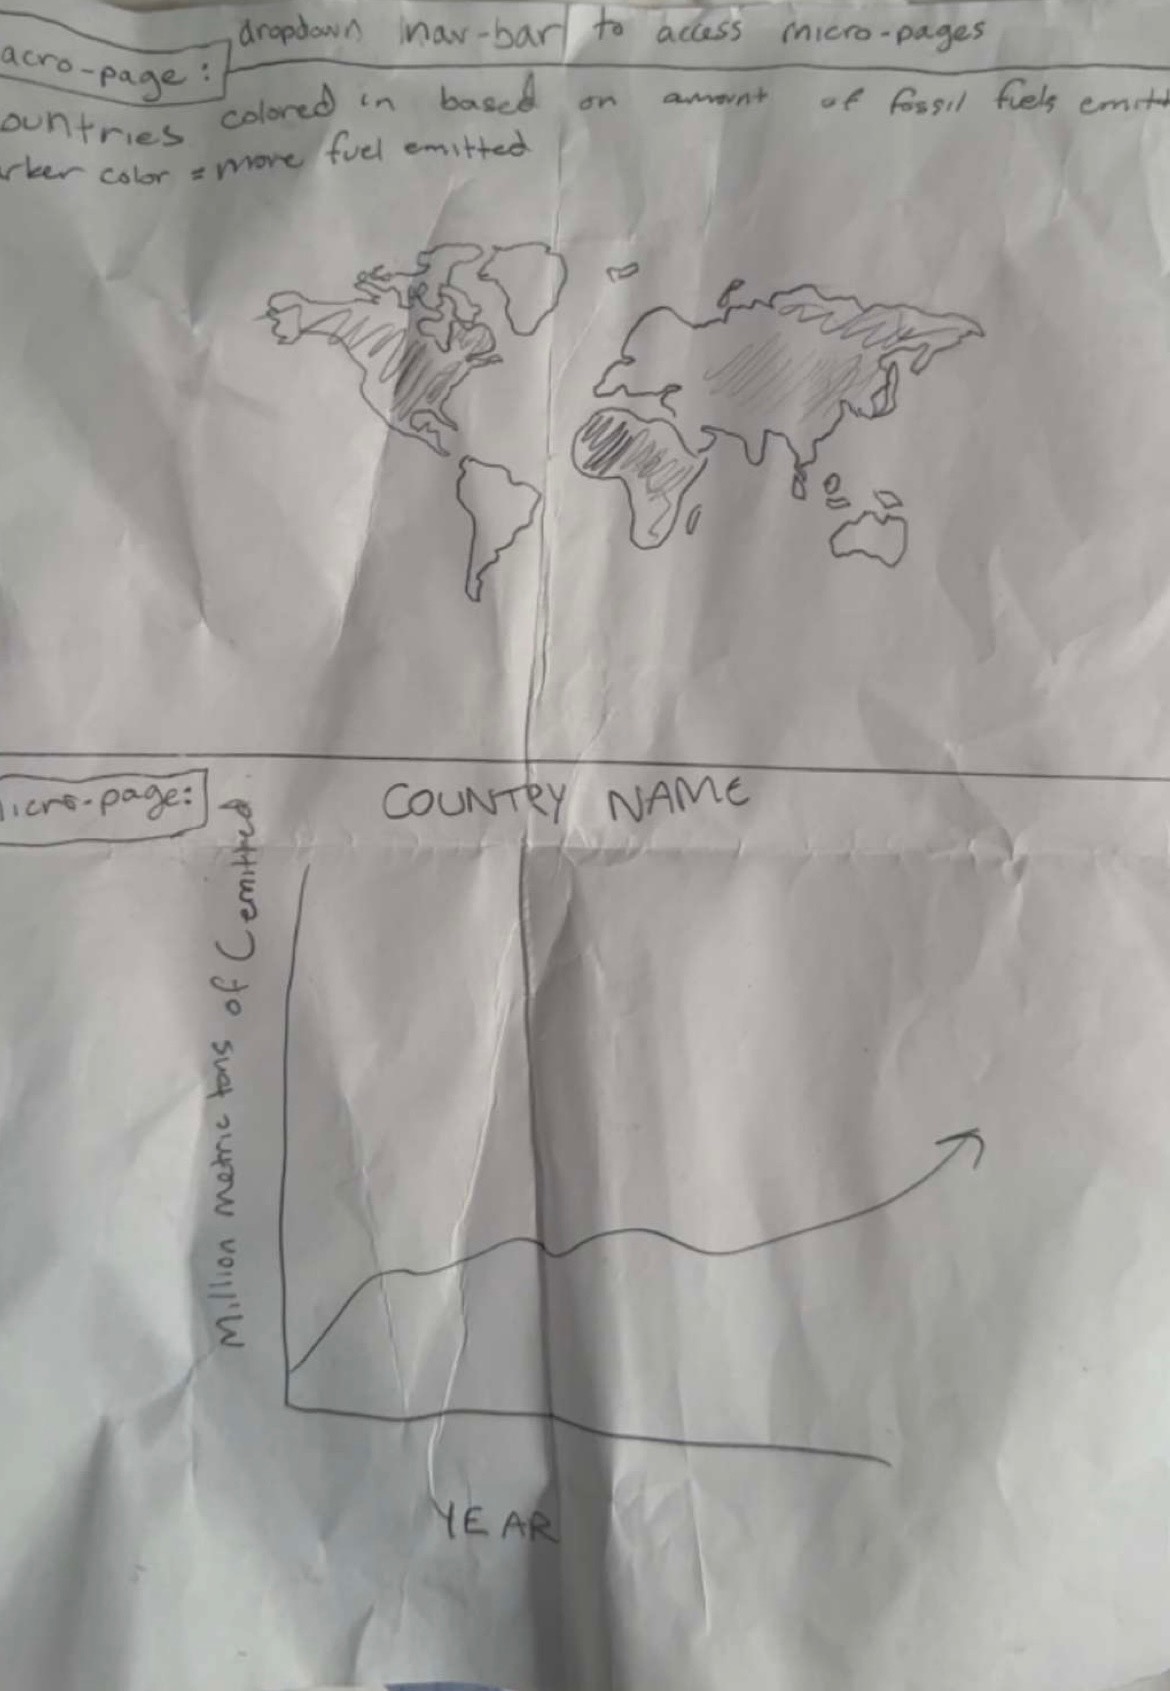 dropdown nav-bar to access micro-pages
acro-page:
ountries colored in based on amount of fossil fuels emitt
rker color = more fuel emitted
icro-page:
COUNTRY NAME
Million metric tons of C emitted
YEAR